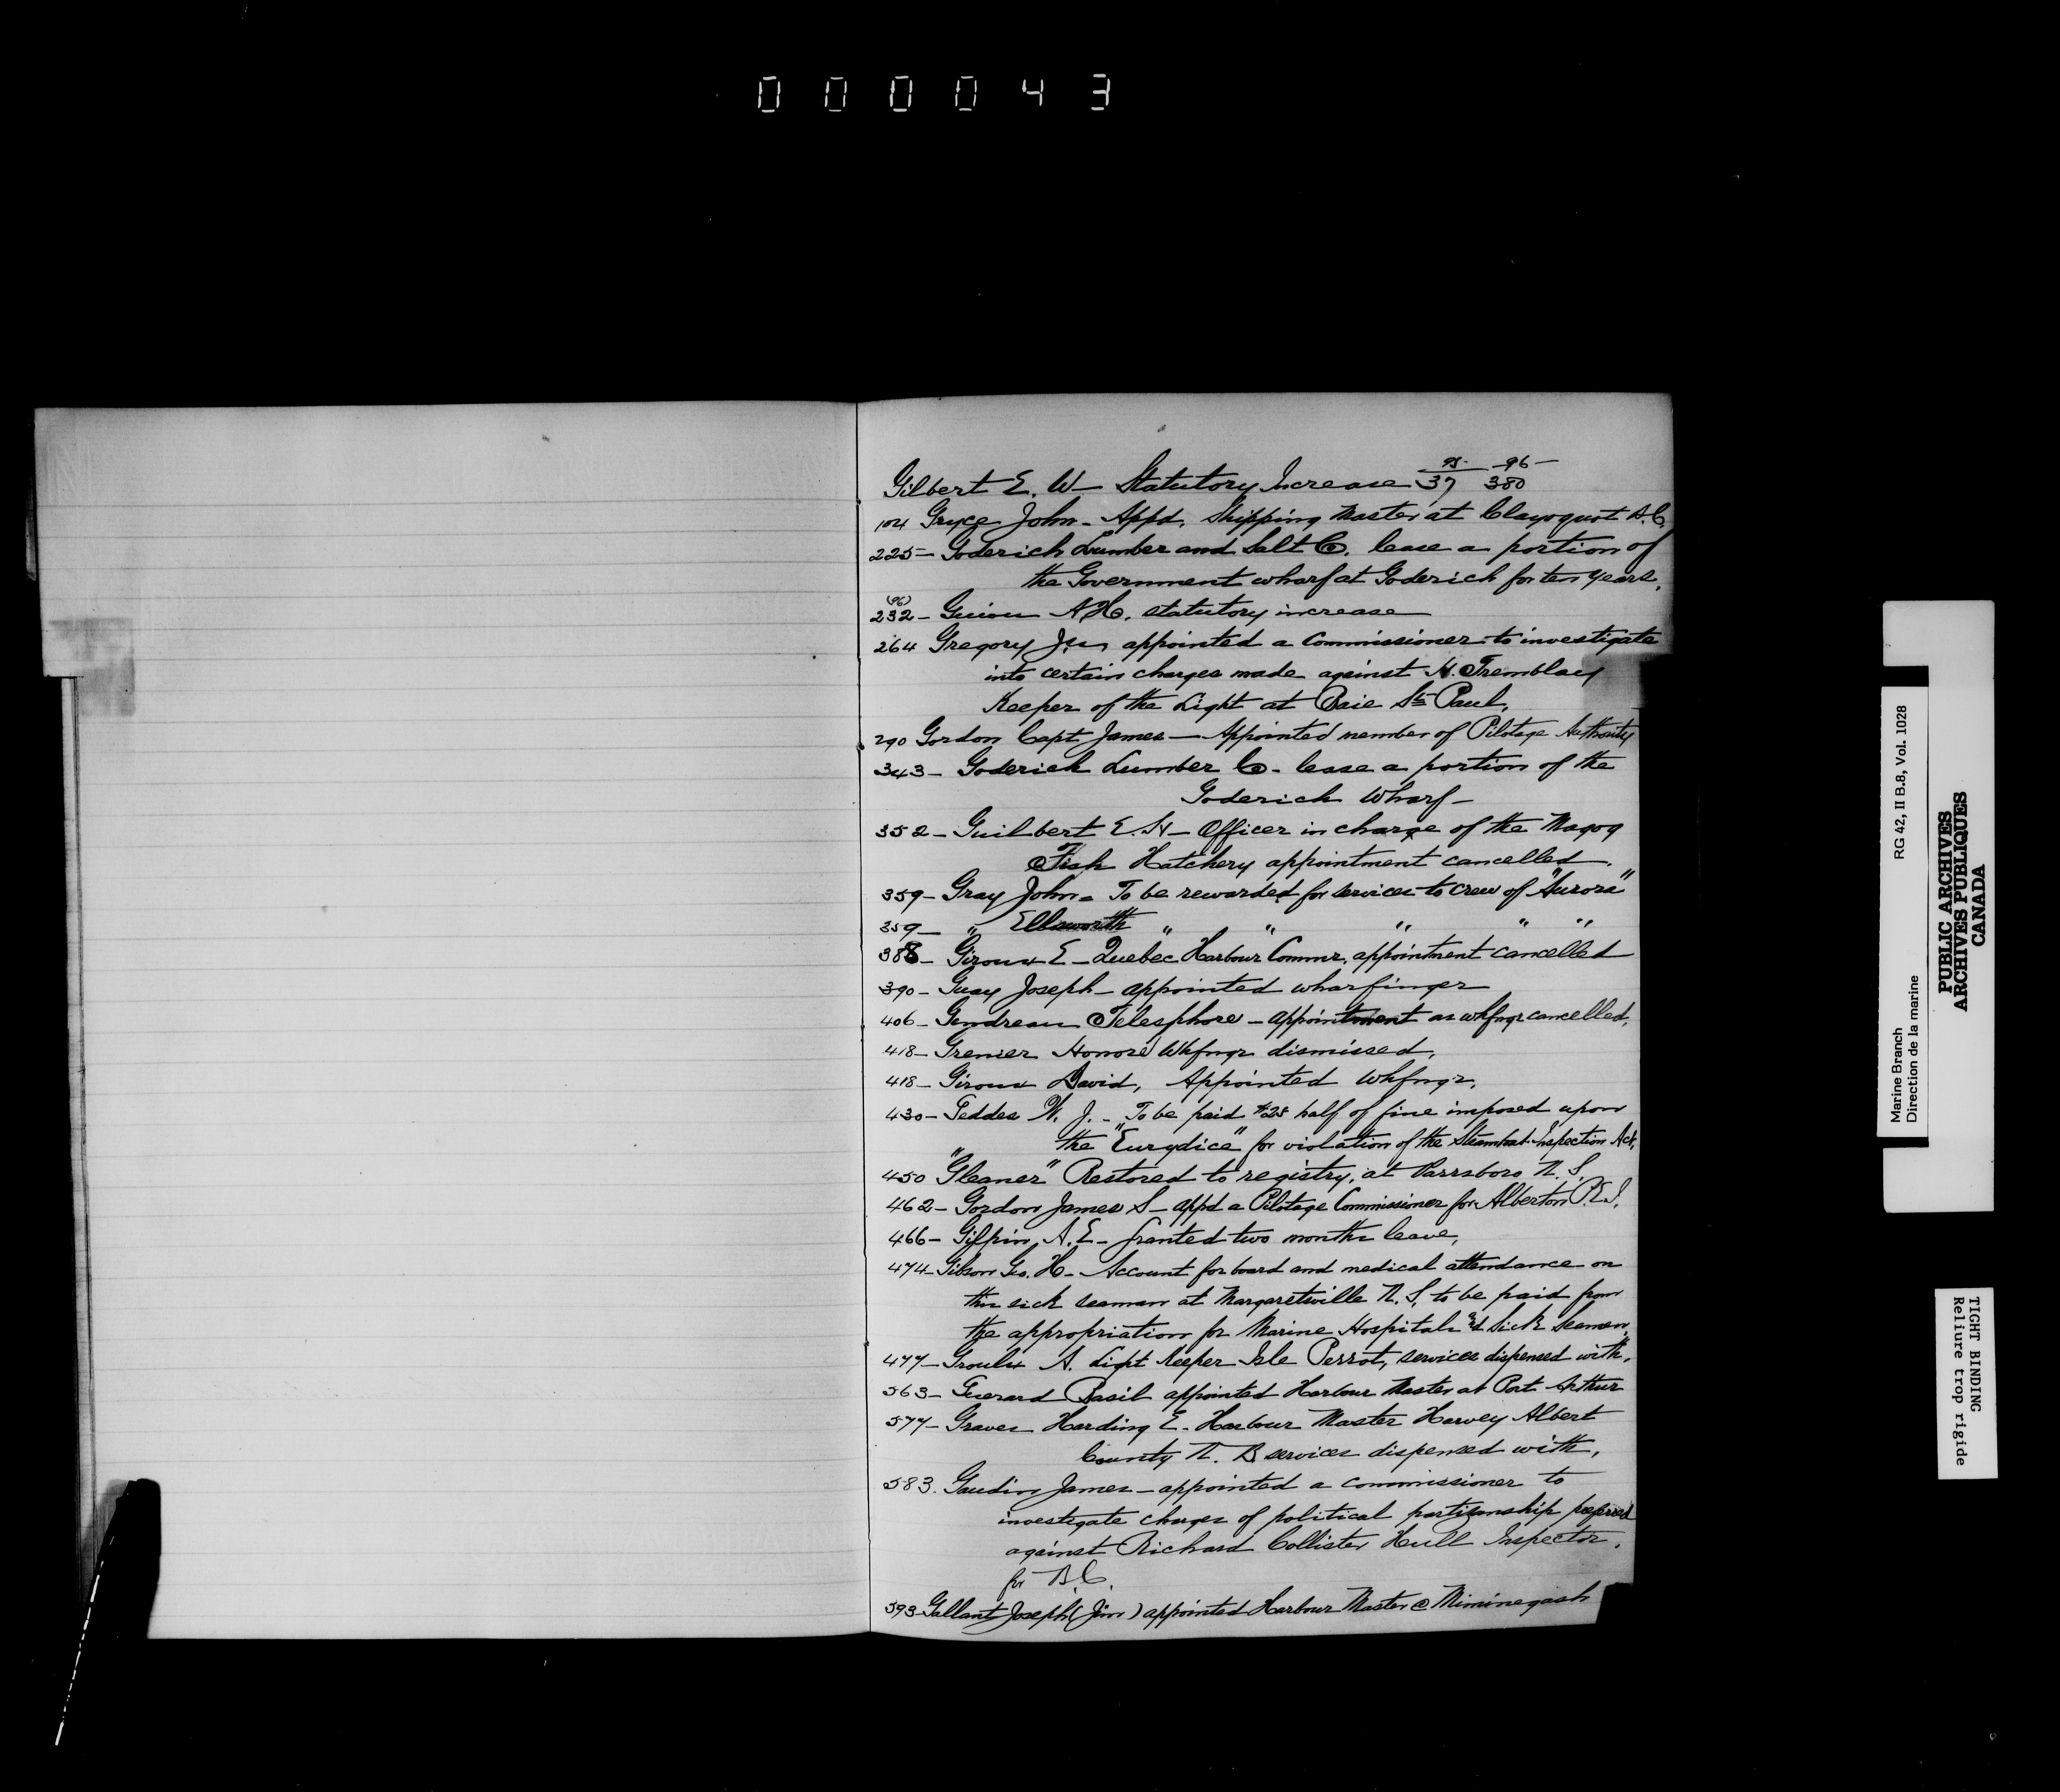 000043
95- -96-
Gilbert E. W - Statutory Increase 37 380
104 Gryce John - Appd. Shipping Master at Clayoquot B.C.
225- Goderich Lumber and Salt Co. lease a portion of
the Government wharf at Goderich for ten years.
(96)
232- Guion A H. statutory increase
264 Gregory J.U. appointed a Commissioner to investigate
into certain charges made against H. Tremblay
Keeper of the Light at Baie St Paul.
290 Gordon Capt James - Appointed member of Pilotage Authority
343- Goderich Lumber Co - lease a portion of the
Goderich Wharf -
352- Guilbert E. H - Officer in charge of the Magog
Fish Hatchery appointment cancelled.
359- Gray John - To be rewarded for services to crew of "Aurora"
359- " Ellsworth " " " " "
388- Giroux E - Quebec Harbour Commr. appointment cancelled
390- Guay Joseph - appointed wharfinger
406- Gendreau Telesphore - appointment as whfngr cancelled.
418- Grenier Honoré Whfngr dismissed.
418- Giroux David, Appointed Whfngr.
430- Geddes W. J. - To be paid $25 half of fine imposed upon
the "Eurydice" for violation of the Steamboat Inspection Act.
450 "Gleaner" Restored to registry, at Parrsboro N. S.
462- Gordon James S - appd a Pilotage Commissioner for Alberton P.E.I.
466- Giffin, A. E - Granted two months leave.
474- Gibson Geo. H - Account for board and medical attendance on
this sick seaman at Margaretsville N. S. to be paid from
the appropriation for Marine Hospitals and Sick Seamen.
477- Groulx A. Light Keeper Isle Perrot, services dispensed with.
563- Guerard Basil appointed Harbour Master at Port Arthur
577- Graves Harding E - Harbour Master Harvey Albert
County N. B services dispensed with.
583. Gaudin James - appointed a commissioner to
investigate charges of political partizanship preferred
against Richard Collister Hull Inspector.
for B.C.
593- Gallant Joseph (Jim) appointed Harbour Master @ Miminegash
Marine Branch RG 42, II B.8, Vol. 1028
Direction de la marine
PUBLIC ARCHIVES
ARCHIVES PUBLIQUES
CANADA
TIGHT BINDING
Reliure trop rigide